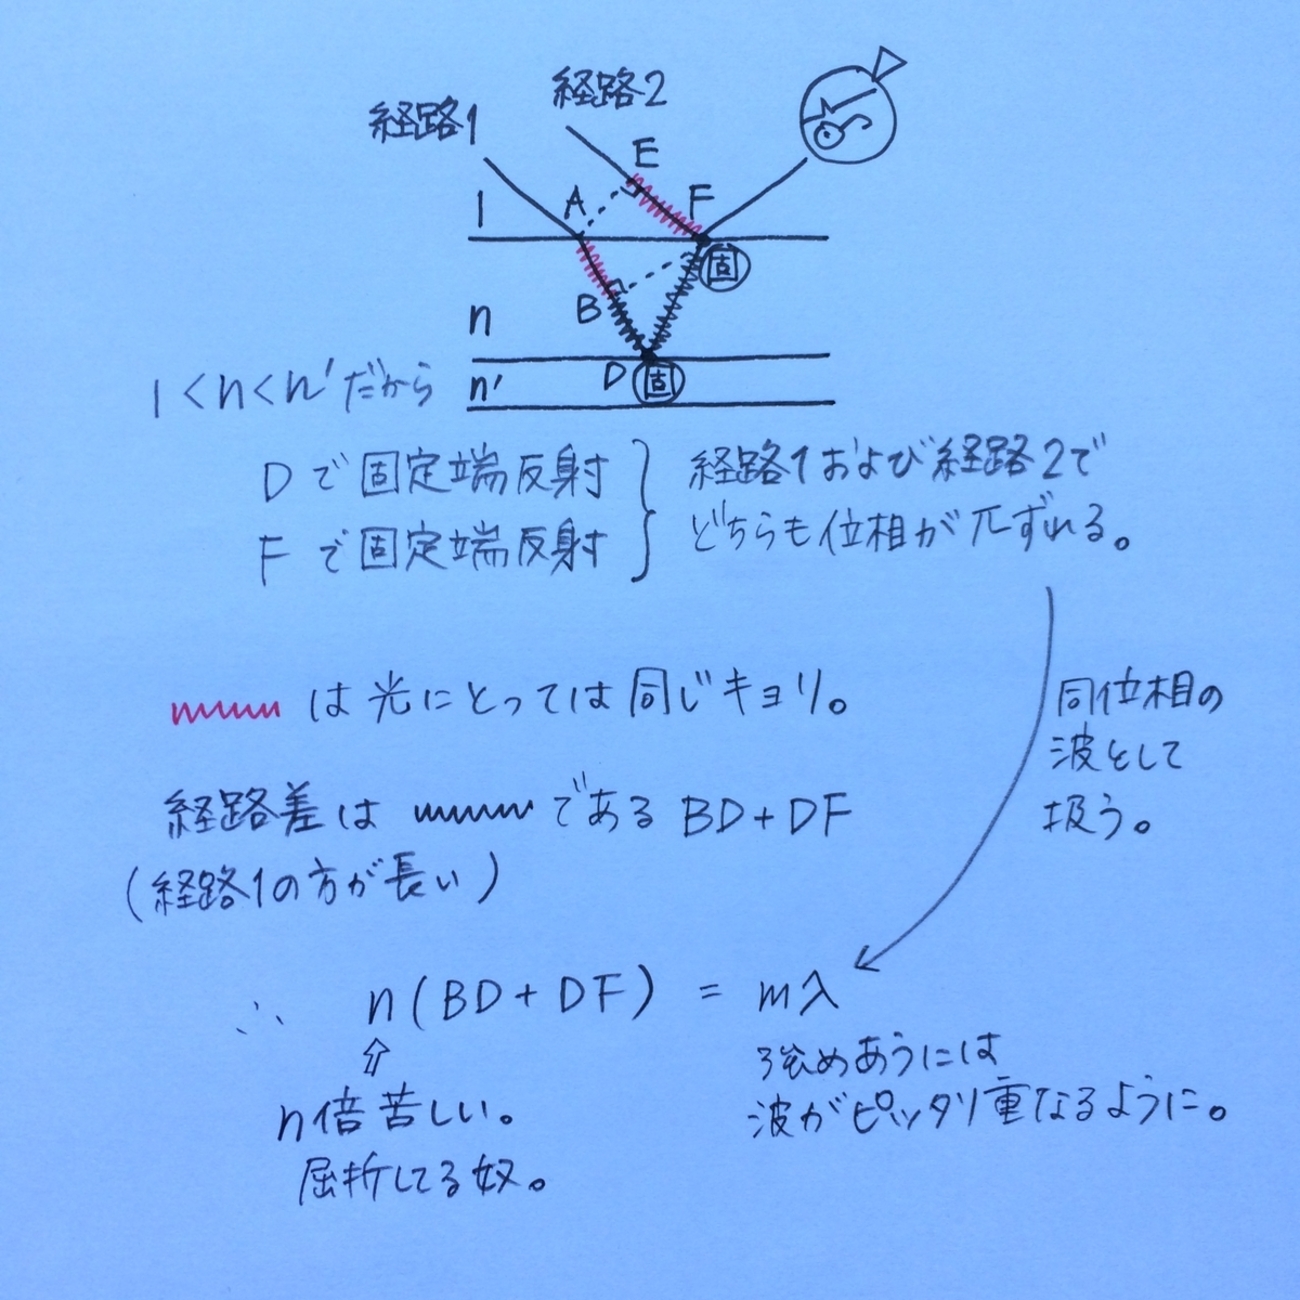 経路1
経路2
E
A
F
1
固
B
n
D
固
n'
1<n<n'だから
Dで固定端反射
Fで固定端反射
経路1および経路2で
どちらも位相がπずれる。
は光にとっては同じキョリ。
同位相の
波として
扱う。
経路差は である BD+DF
(経路1の方が長い)
∴ n(BD+DF) = mλ
⇑
n倍苦しい。
屈折してる奴。
強めあうには
波がピッタリ重なるように。